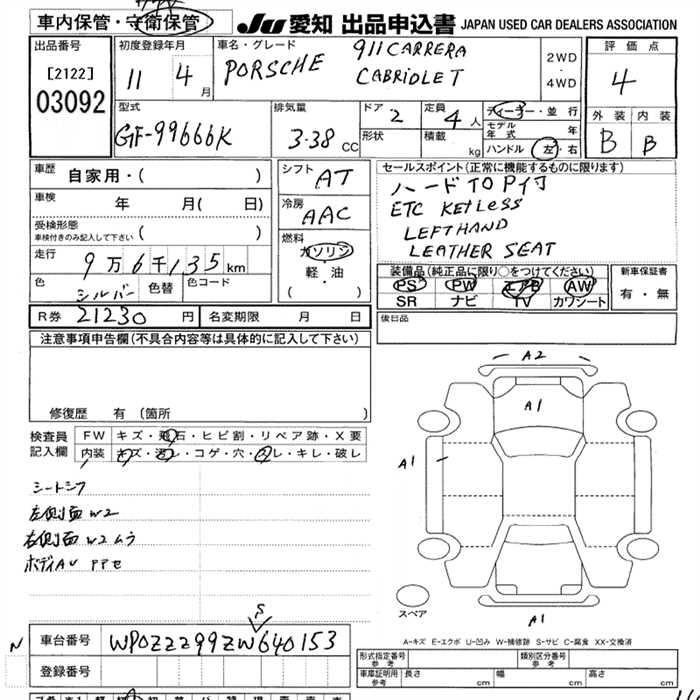 車内保管・守衛保管
JU 愛知 出品申込書 JAPAN USED CAR DEALERS ASSOCIATION
出品番号
[2122]
03092
初度登録年月
11 4 月
車名・グレード
PORSCHE
911 CARRERA
CABRIOLET
2WD
・
4WD
評価点
4
外装 内装
B B
型式
GF-99666K
排気量
3.38 CC
ドア 2
形状
定員 4 人
積載 kg
ディーラー・並行
モデル年式 年
ハンドル 左・右
車歴 自家用・( )
車検 年 月( 日)
受検形態
車検付きのみ記入して下さい ( )
走行 9万6千135km
色 シルバー 色替 色コード
シフト AT
冷房 AAC
燃料
ガソリン
・
軽・油
( )
セールスポイント(正常に機能するものに限ります)
ハードTOP付
ETC KEYLESS
LEFT HAND
LEATHER SEAT
装備品(純正品に限り○をつけてください)
PS PW AW
SR ナビ TV カワシート
新車保証書
有・無
R券 21230 円 名変期限 月 日
後日品
注意事項申告欄(不具合内容等は具体的に記入して下さい)
修復歴 有(箇所 )
検査員
記入欄
FW キズ・飛石・ヒビ割・リペア跡・X要
内装 キズ・汚レ・コゲ・穴・スレ・キレ・破レ
シートシワ
左側面W2
右側面W2ムラ
ボディAU
A2
A1
A1
A1
スペア
A-キズ E-エクボ U-凹み W-補修跡 S-サビ C-腐食 XX-交換済
S
N 車台番号 WP0ZZZ99ZW640153
登録番号
形式指定番号 参考
類別区分番号 参考
車庫証明用 参考 長さ cm 幅 cm 高さ cm